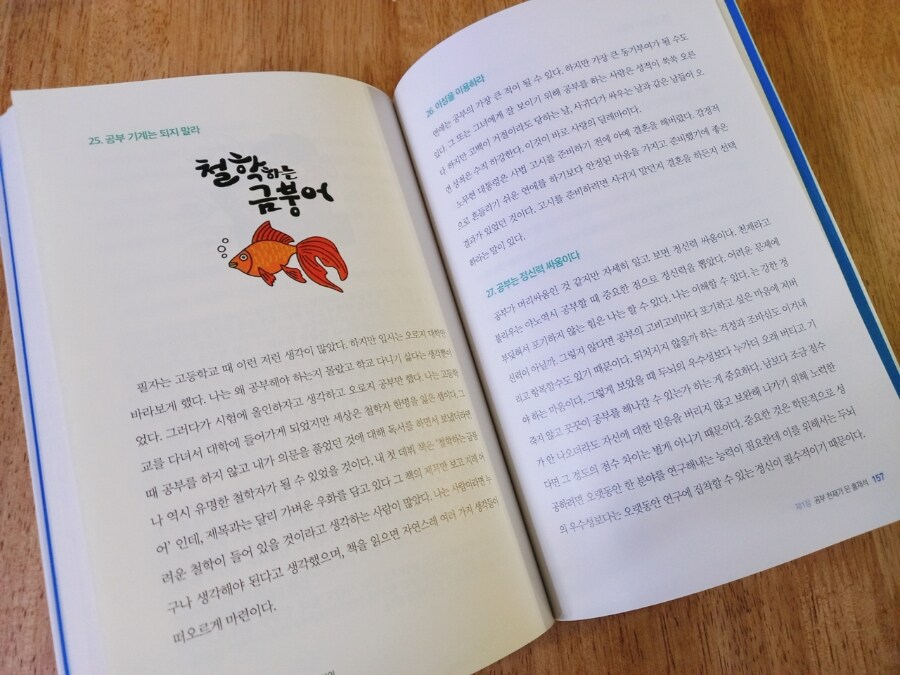 25. 공부 기계는 되지 말라
철학하는
금붕어
필자는 고등학교 때 이런 저런 생각이 많았다. 하지만 입시는 오로지 대학만
바라보게 했다. 나는 왜 공부해야 하는지 몰랐고 학교 다니기 싫다는 생각뿐이
었다. 그러다가 시험에 올인하자고 생각하고 오로지 공부만 했다. 나는 고등학
교를 다녀서 대학에 들어가게 되었지만 세상은 철학자 한명을 잃은 셈이다. 그
때 공부를 하지 않고 내가 의문을 품었던 것에 대해 독서를 하면서 보냈더라면
나 역시 유명한 철학자가 될 수 있었을 것이다. 내 첫 데뷔 책은 '철학하는 금붕
어' 인데, 제목과는 달리 가벼운 우화를 담고 있다 그 책의 제목만 보고 지레 어
려운 철학이 들어 있을 것이라고 생각하는 사람이 많았다. 나는 사람이라면 누
구나 생각해야 된다고 생각했으며, 책을 읽으면 자연스레 여러 가지 생각들이
떠오르게 마련이다.
26. 이성을 이용하라
연애는 공부의 가장 큰 적이 될 수 있다. 하지만 가장 큰 동기부여가 될 수도
있다. 그 또는 그녀에게 잘 보이기 위해 공부를 하는 사람은 성적이 쑥쑥 오른
다 하지만 고백이 거절이라도 당하는 날, 사귀다가 싸우는 날과 같은 날들이 오
면 성적은 수직 하강한다. 이것이 바로 사랑의 딜레마이다.
노무현 대통령은 사법 고시를 준비하기 전에 아예 결혼을 해버렸다. 감정적
으로 흔들리기 쉬운 연애를 하기보다 안정된 마음을 가지고 준비했기에 좋은
결과가 있었던 것이다. 고시를 준비하려면 사귀지 말던지 결혼을 하든지 선택
하라는 말이 있다.
27. 공부는 정신력 싸움이다
공부가 머리싸움인 것 같지만 자세히 알고 보면 정신력 싸움이다. 천재라고
불리우는 야노역시 공부할 때 중요한 점으로 정신력을 뽑았다. 어려운 문제에
부딪혀서 포기하지 않는 힘은 나는 할 수 있다. 나는 이해할 수 있다. 는 강한 정
신력이 아닐까. 그렇지 않다면 공부의 고비고비마다 포기하고 싶은 마음에 져버
리고 항복할수도 있기 때문이다. 뒤쳐지지 않을까 하는 걱정과 조바심도 이겨내
야 하는 마음이다. 그렇게 보았을 때 두뇌의 우수성보다 누가더 오래 버티고 기
죽지 않고 꿋꿋이 공부를 해나갈 수 있는가 하는 게 중요하다. 남보다 조금 점수
가 한 나오더라도 자신에 대한 믿음을 버리지 않고 보완해 나가기 위해 노력한
다면 그 정도의 점수 차이는 별게 아니기 때문이다. 중요한 것은 학문적으로 성
공하려면 오랫동안 한 분야를 연구해내는 능력이 필요한데 이를 위해서는 두뇌
의 우수성보다는 오랫동안 연구에 집착할 수 있는 정신이 필수적이기 때문이다.
제1장 공부 천재가 된 홍재석 157